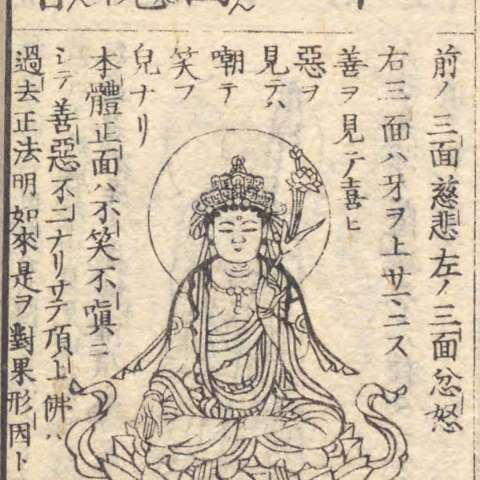 前ノ三面慈悲左ノ三面忿怒
右三面ハ牙ヲ上サマニス
善ヲ見テ喜ヒ
惡ヲ
見テハ
嘲テ
笑フ
皃ナリ
本體正面ハ不笑不嗔ニ
シテ善惡不二ナリサテ頂上佛ハ
過去正法明如來是ヲ對果形因ト